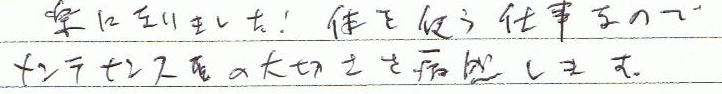 楽になりました！体を使う仕事なので
メンテナンスの大切さを痛感します。